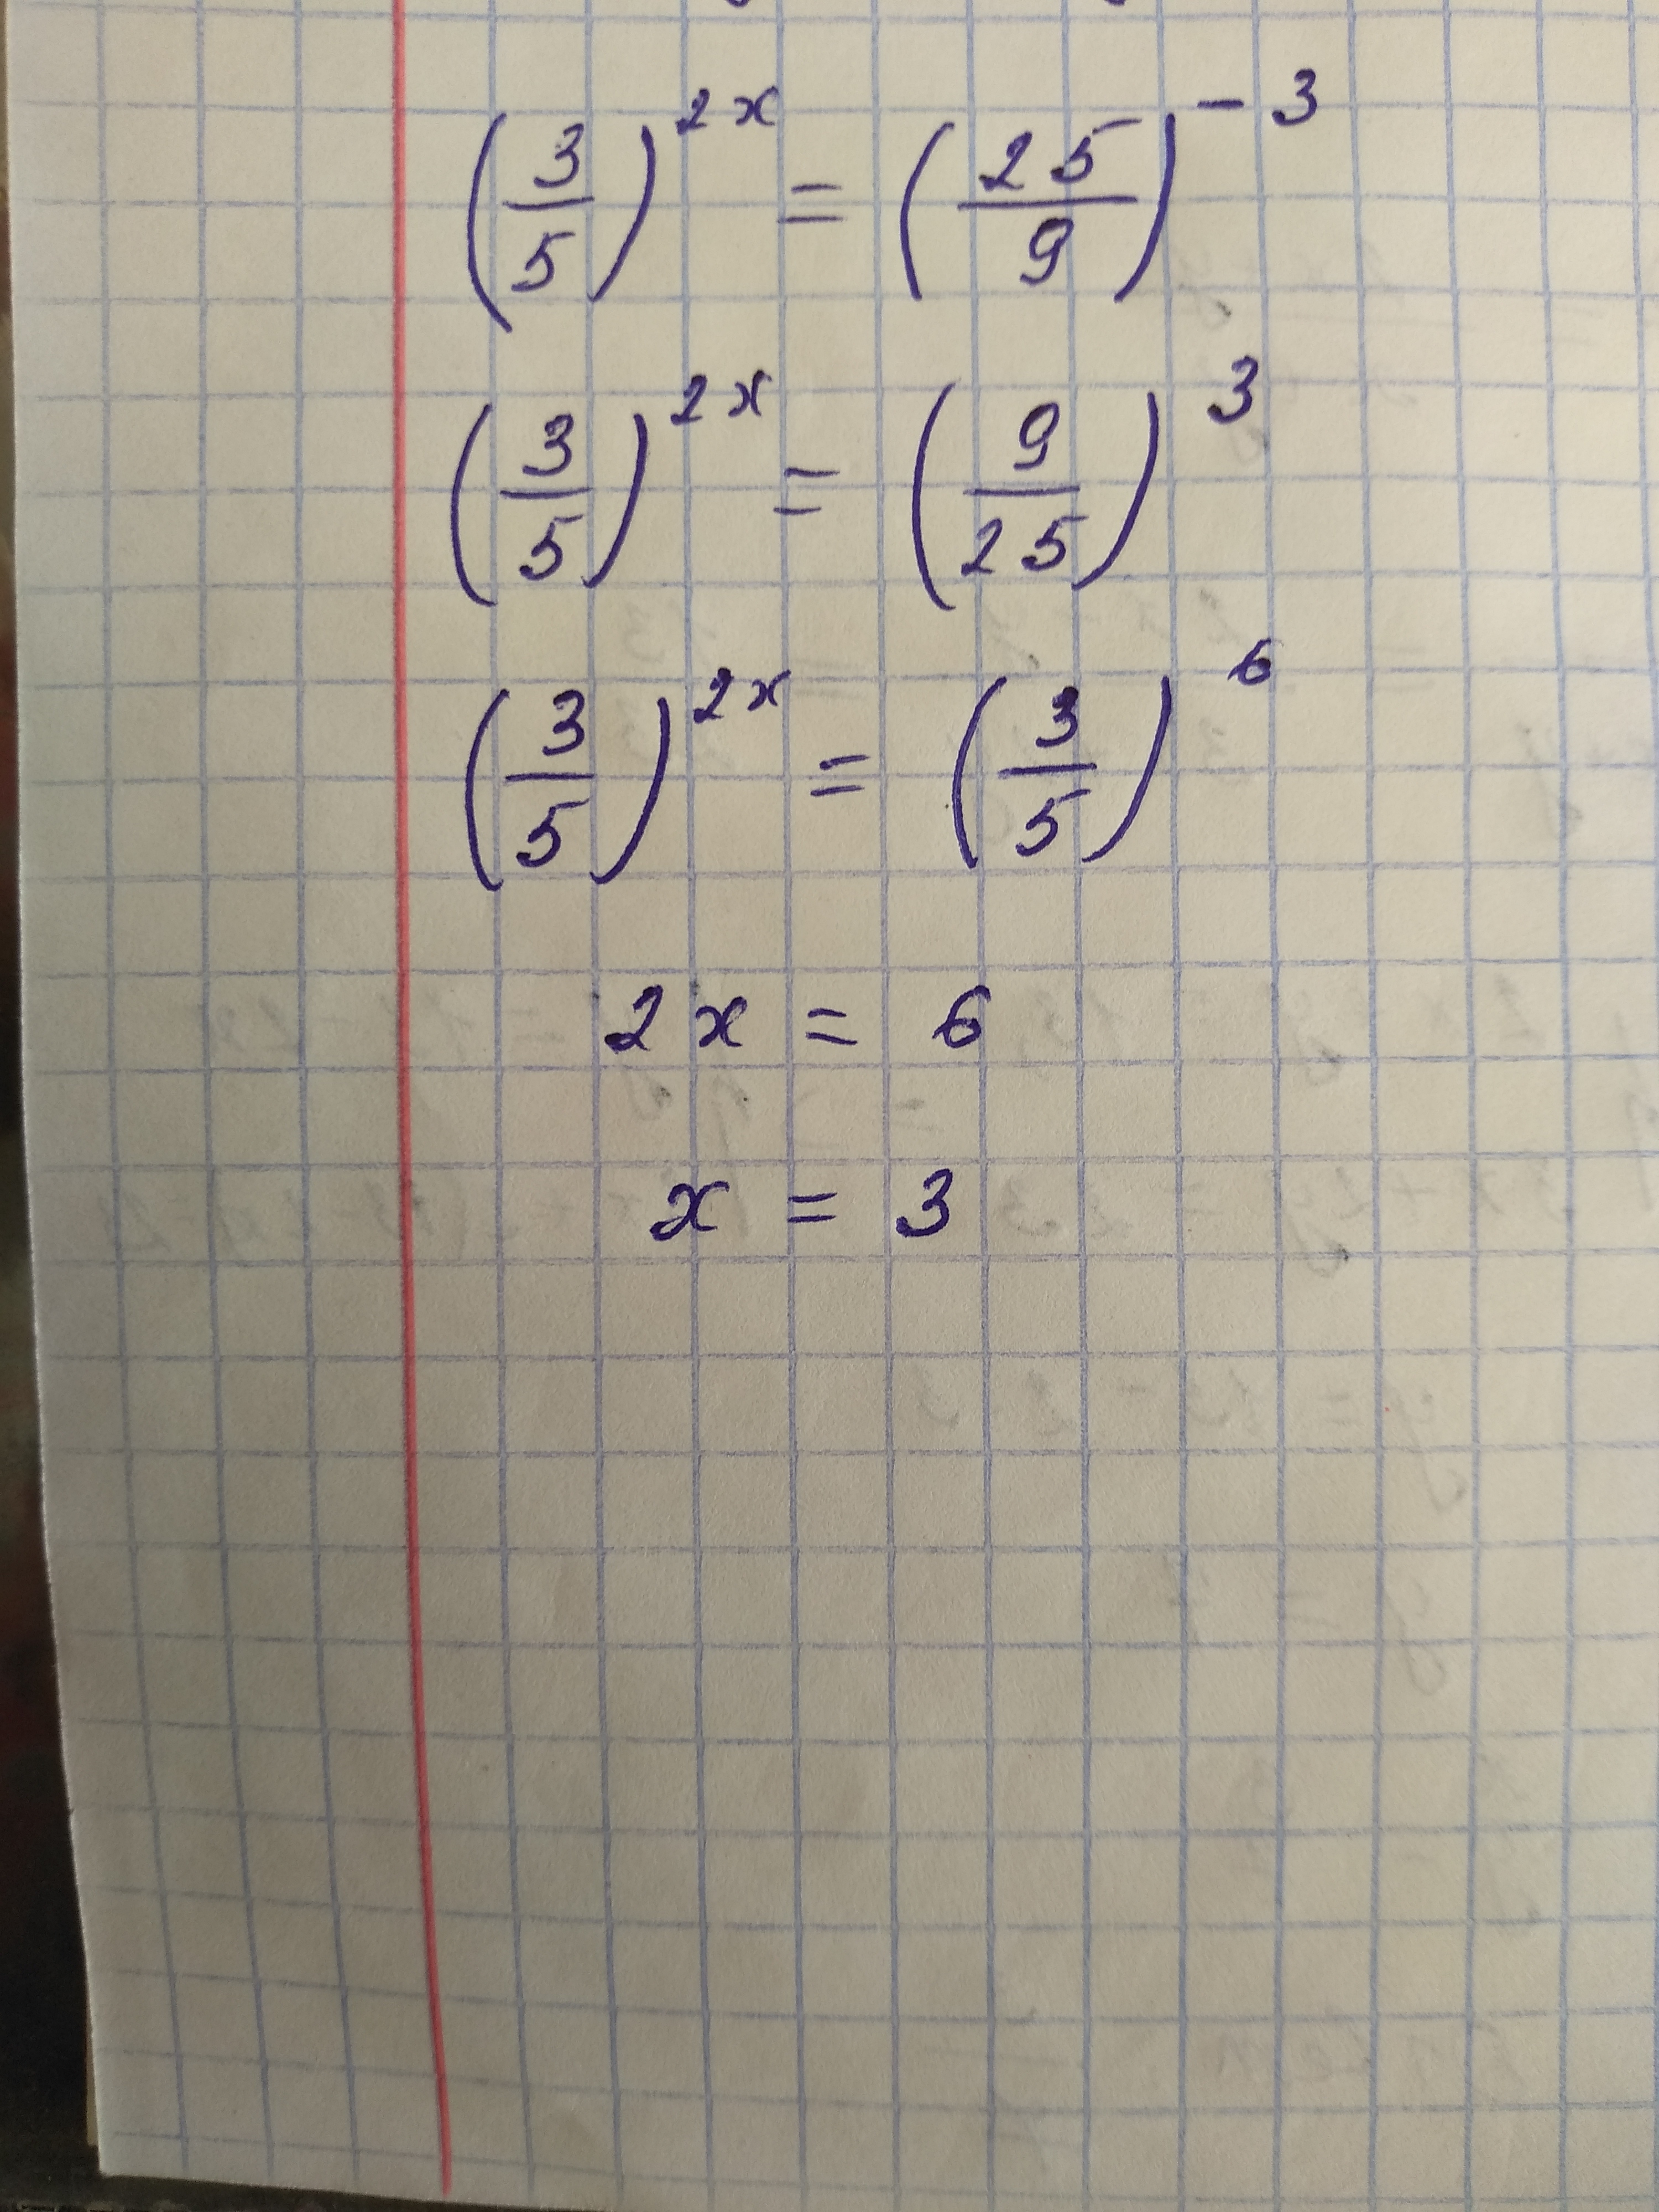 (3/5)^2x = (25/9)^-3
(3/5)^2x = (9/25)^3
(3/5)^2x = (3/5)^6
2x = 6
x = 3